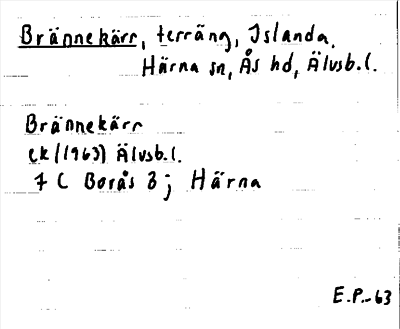 Brännekärr, terräng, Islanda,
Härna sn, Ås hd, Älvsb.l.
Brännekärr
ek/(1963) Älvsb.l.
7 C Borås 3; Härna
E.P.-63